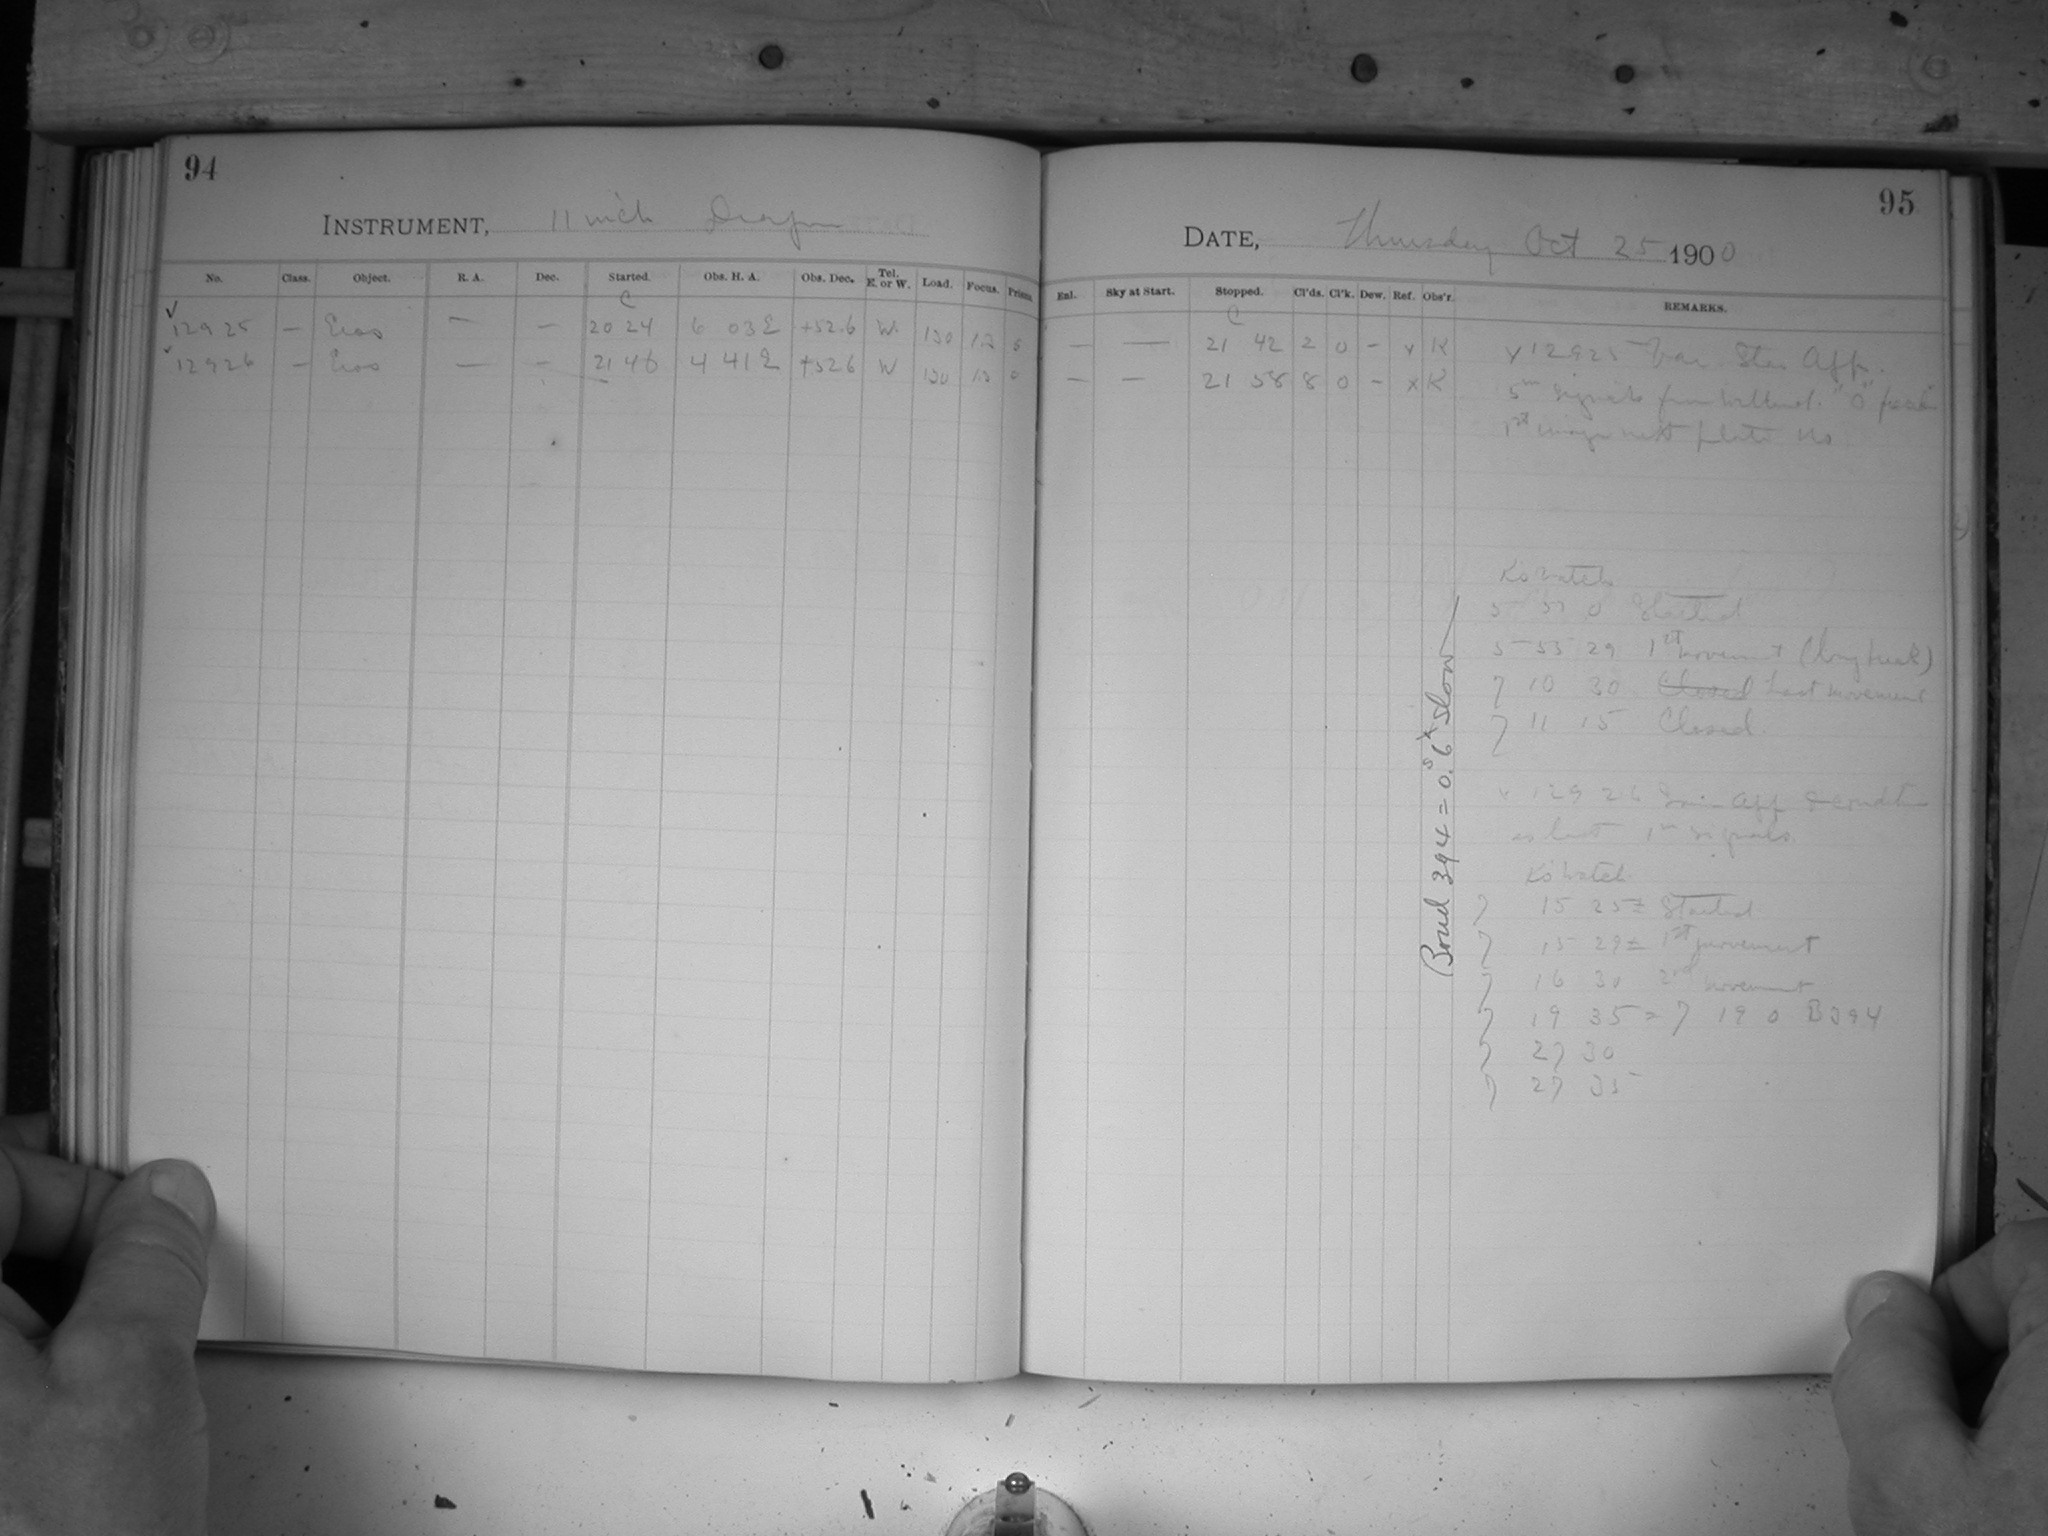 94
INSTRUMENT, 11 inch Draper
No. Class. Object. R. A. Dec. Started. Obs. H. A. Obs. Dec. Tel. E. or W. Load. Focus. Prisms
C
12925 — Eros — — 20 24 6 03 E +52.6 W 130 0
12926 — Eros — — 21 46 4 41 E +52.6 W 130 0
95
DATE, Thursday Oct 25 1900
Enl. Sky at Start. Stopped. Cl'ds. Cl'k. Dew. Ref. Obs'r. REMARKS.
C
— — 21 42 2 0 - x K x 12925 Var. Star App.
— — 21 58 8 0 - x K 5m signals from
1st image next plate No
K's watch
5 0 Started
5 55 29 1st movement (long break)
7 10 30 Closed Last movement
7 11 15 Closed
Bond 394 = 0.s6 x slow
x 12926 App
as last 1m signals.
K's watch
7 15 25± Started
7 15 29± 1st movement
7 16 30 2nd movement
7 19 35 = 7 19 0 B394
7 27 30
7 27 35